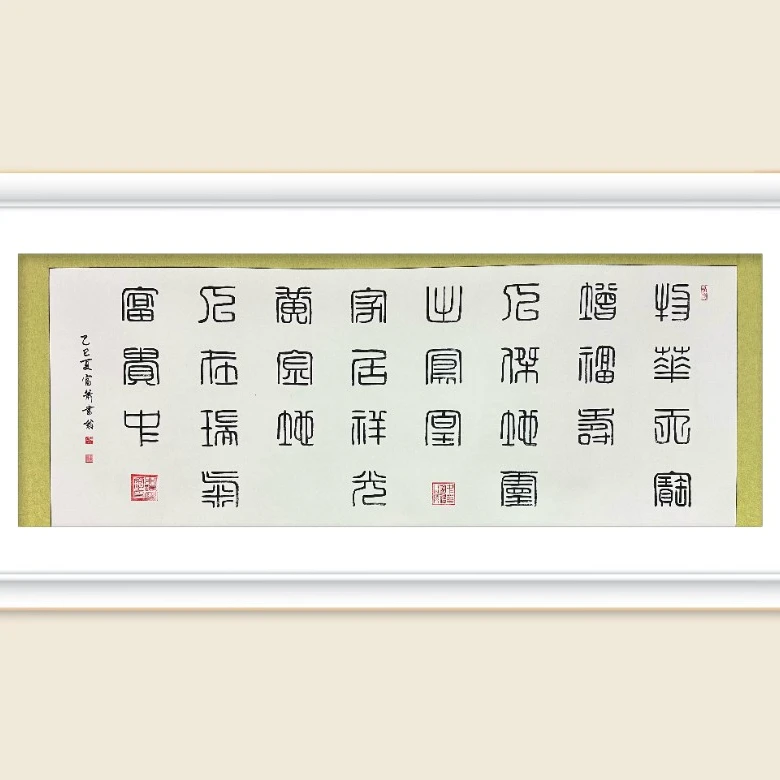 物華天寶
增福壽
人傑地靈
出鳳凰
家居祥光
黃金地
人在瑞氣
富貴中
乙巳夏富書